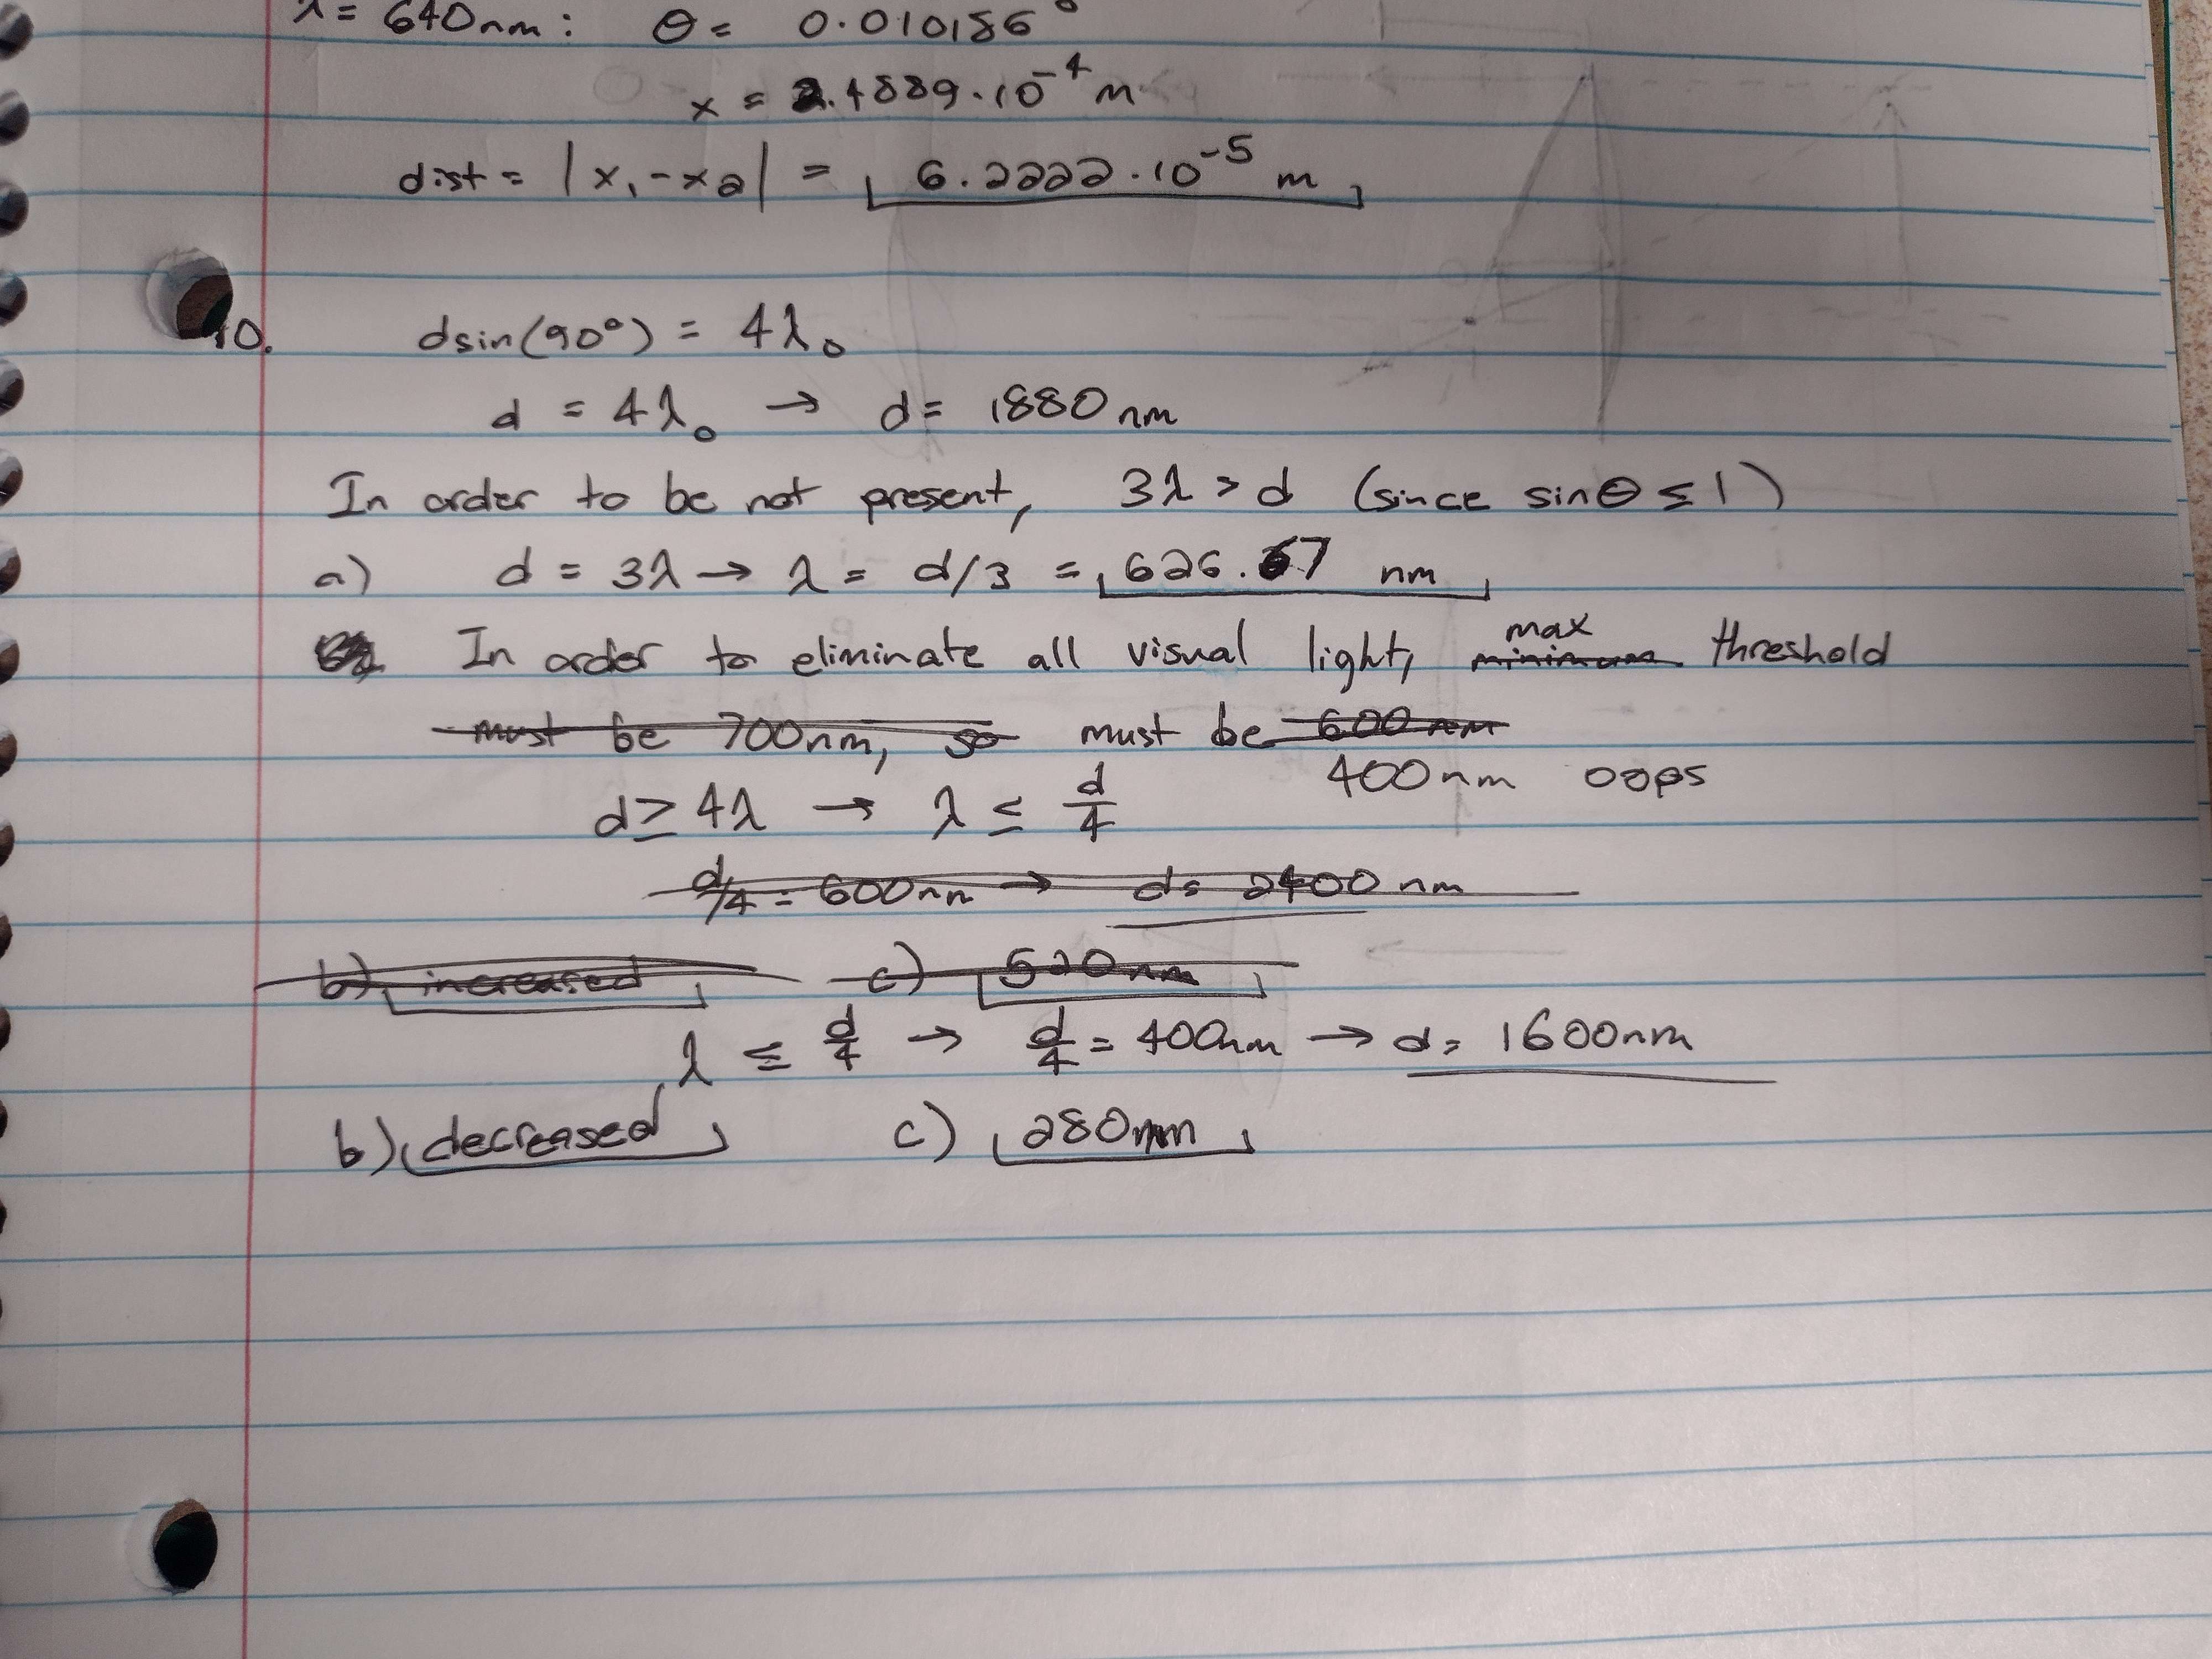 λ = 640nm: θ = 0.010186°
x = 2.4889·10⁻⁴ m
dist = |x₁-x₂| = 6.2222·10⁻⁵ m
10. dsin(90°) = 4λ₀
d = 4λ₀ → d = 1880 nm
In order to be not present, 3λ > d (since sinθ ≤ 1)
a) d = 3λ → λ = d/3 = 626.67 nm
In order to eliminate all visual light, minimum max threshold
must be 700nm, so must be 600 nm
400nm oops
d ≥ 4λ → λ ≤ d/4
d/4 = 600nm → d = 2400 nm
b) increased c) 520nm
λ ≤ d/4 → d/4 = 400nm → d = 1600nm
b) decreased c) 280nm